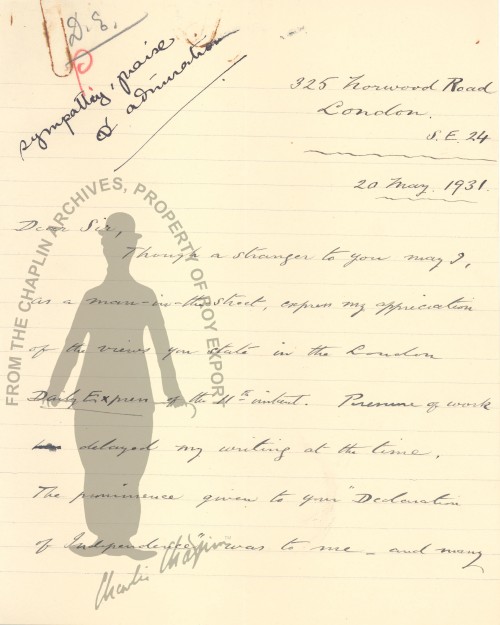 D.E.
sympathy, praise
& admiration
325 Norwood Road
London.
S.E. 24
20 May. 1931.
Dear Sir,
Though a stranger to you may I,
as a man-in-the-street, express my appreciation
of the views you state in the London
Daily Express of the 11th instant. Pressure of work
delayed my writing at the time.
The prominence given to your "Declaration
of Independence" was to me - and many
FROM THE CHAPLIN ARCHIVES, PROPERTY OF ROY EXPORT
Charlie Chaplin™